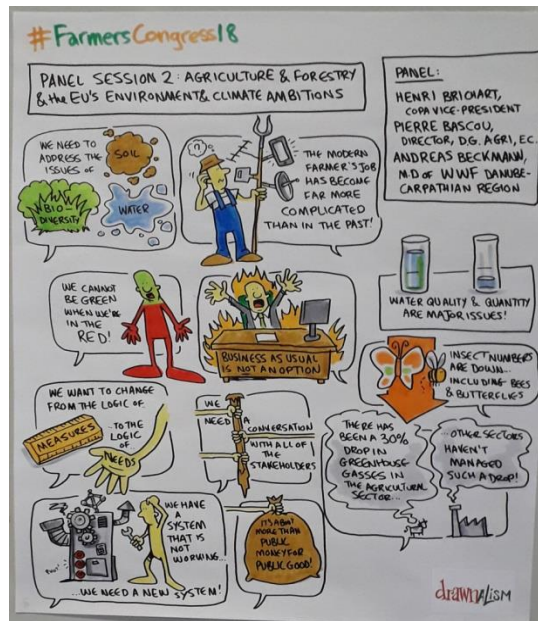 #FarmersCongress18
PANEL SESSION 2: AGRICULTURE & FORESTRY
& the EU'S ENVIRONMENT & CLIMATE AMBITIONS
PANEL:
HENRI BRICHART,
COPA VICE-PRESIDENT
PIERRE BASCOU,
DIRECTOR, D.G. AGRI, E.C.
ANDREAS BECKMANN,
M.D OF WWF DANUBE-
CARPATHIAN REGION
WE NEED TO
ADDRESS THE
ISSUES OF
SOIL
BIO-
DIVERSITY
WATER
?
THE MODERN
FARMER'S JOB
HAS BECOME
FAR MORE
COMPLICATED
THAN IN THE PAST!
WE CANNOT
BE GREEN
WHEN WE'RE
IN THE
RED!
BUSINESS AS USUAL
IS NOT AN OPTION
WATER QUALITY & QUANTITY
ARE MAJOR ISSUES!
INSECT NUMBERS
ARE DOWN...
INCLUDING BEES
& BUTTERFLIES
WE WANT TO CHANGE
FROM THE LOGIC OF
MEASURES
...TO THE
LOGIC
OF
NEEDS
WE
NEED A
CONVERSATION
WITH ALL OF
THE
STAKEHOLDERS
THERE HAS
BEEN A 30%
DROP IN
GREENHOUSE
GASSES IN
THE AGRICULTURAL
SECTOR...
...OTHER SECTORS
HAVEN'T
MANAGED
SUCH A DROP!
WE HAVE
A
SYSTEM
THAT IS
NOT
WORKING...
...WE NEED A NEW SYSTEM!
IT'S ABOUT
MORE THAN
PUBLIC
MONEY FOR
PUBLIC GOOD!
drawnalism